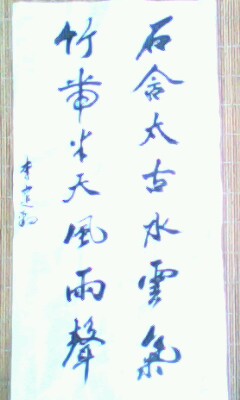 石含太古水雲氣
竹帶半天風雨聲